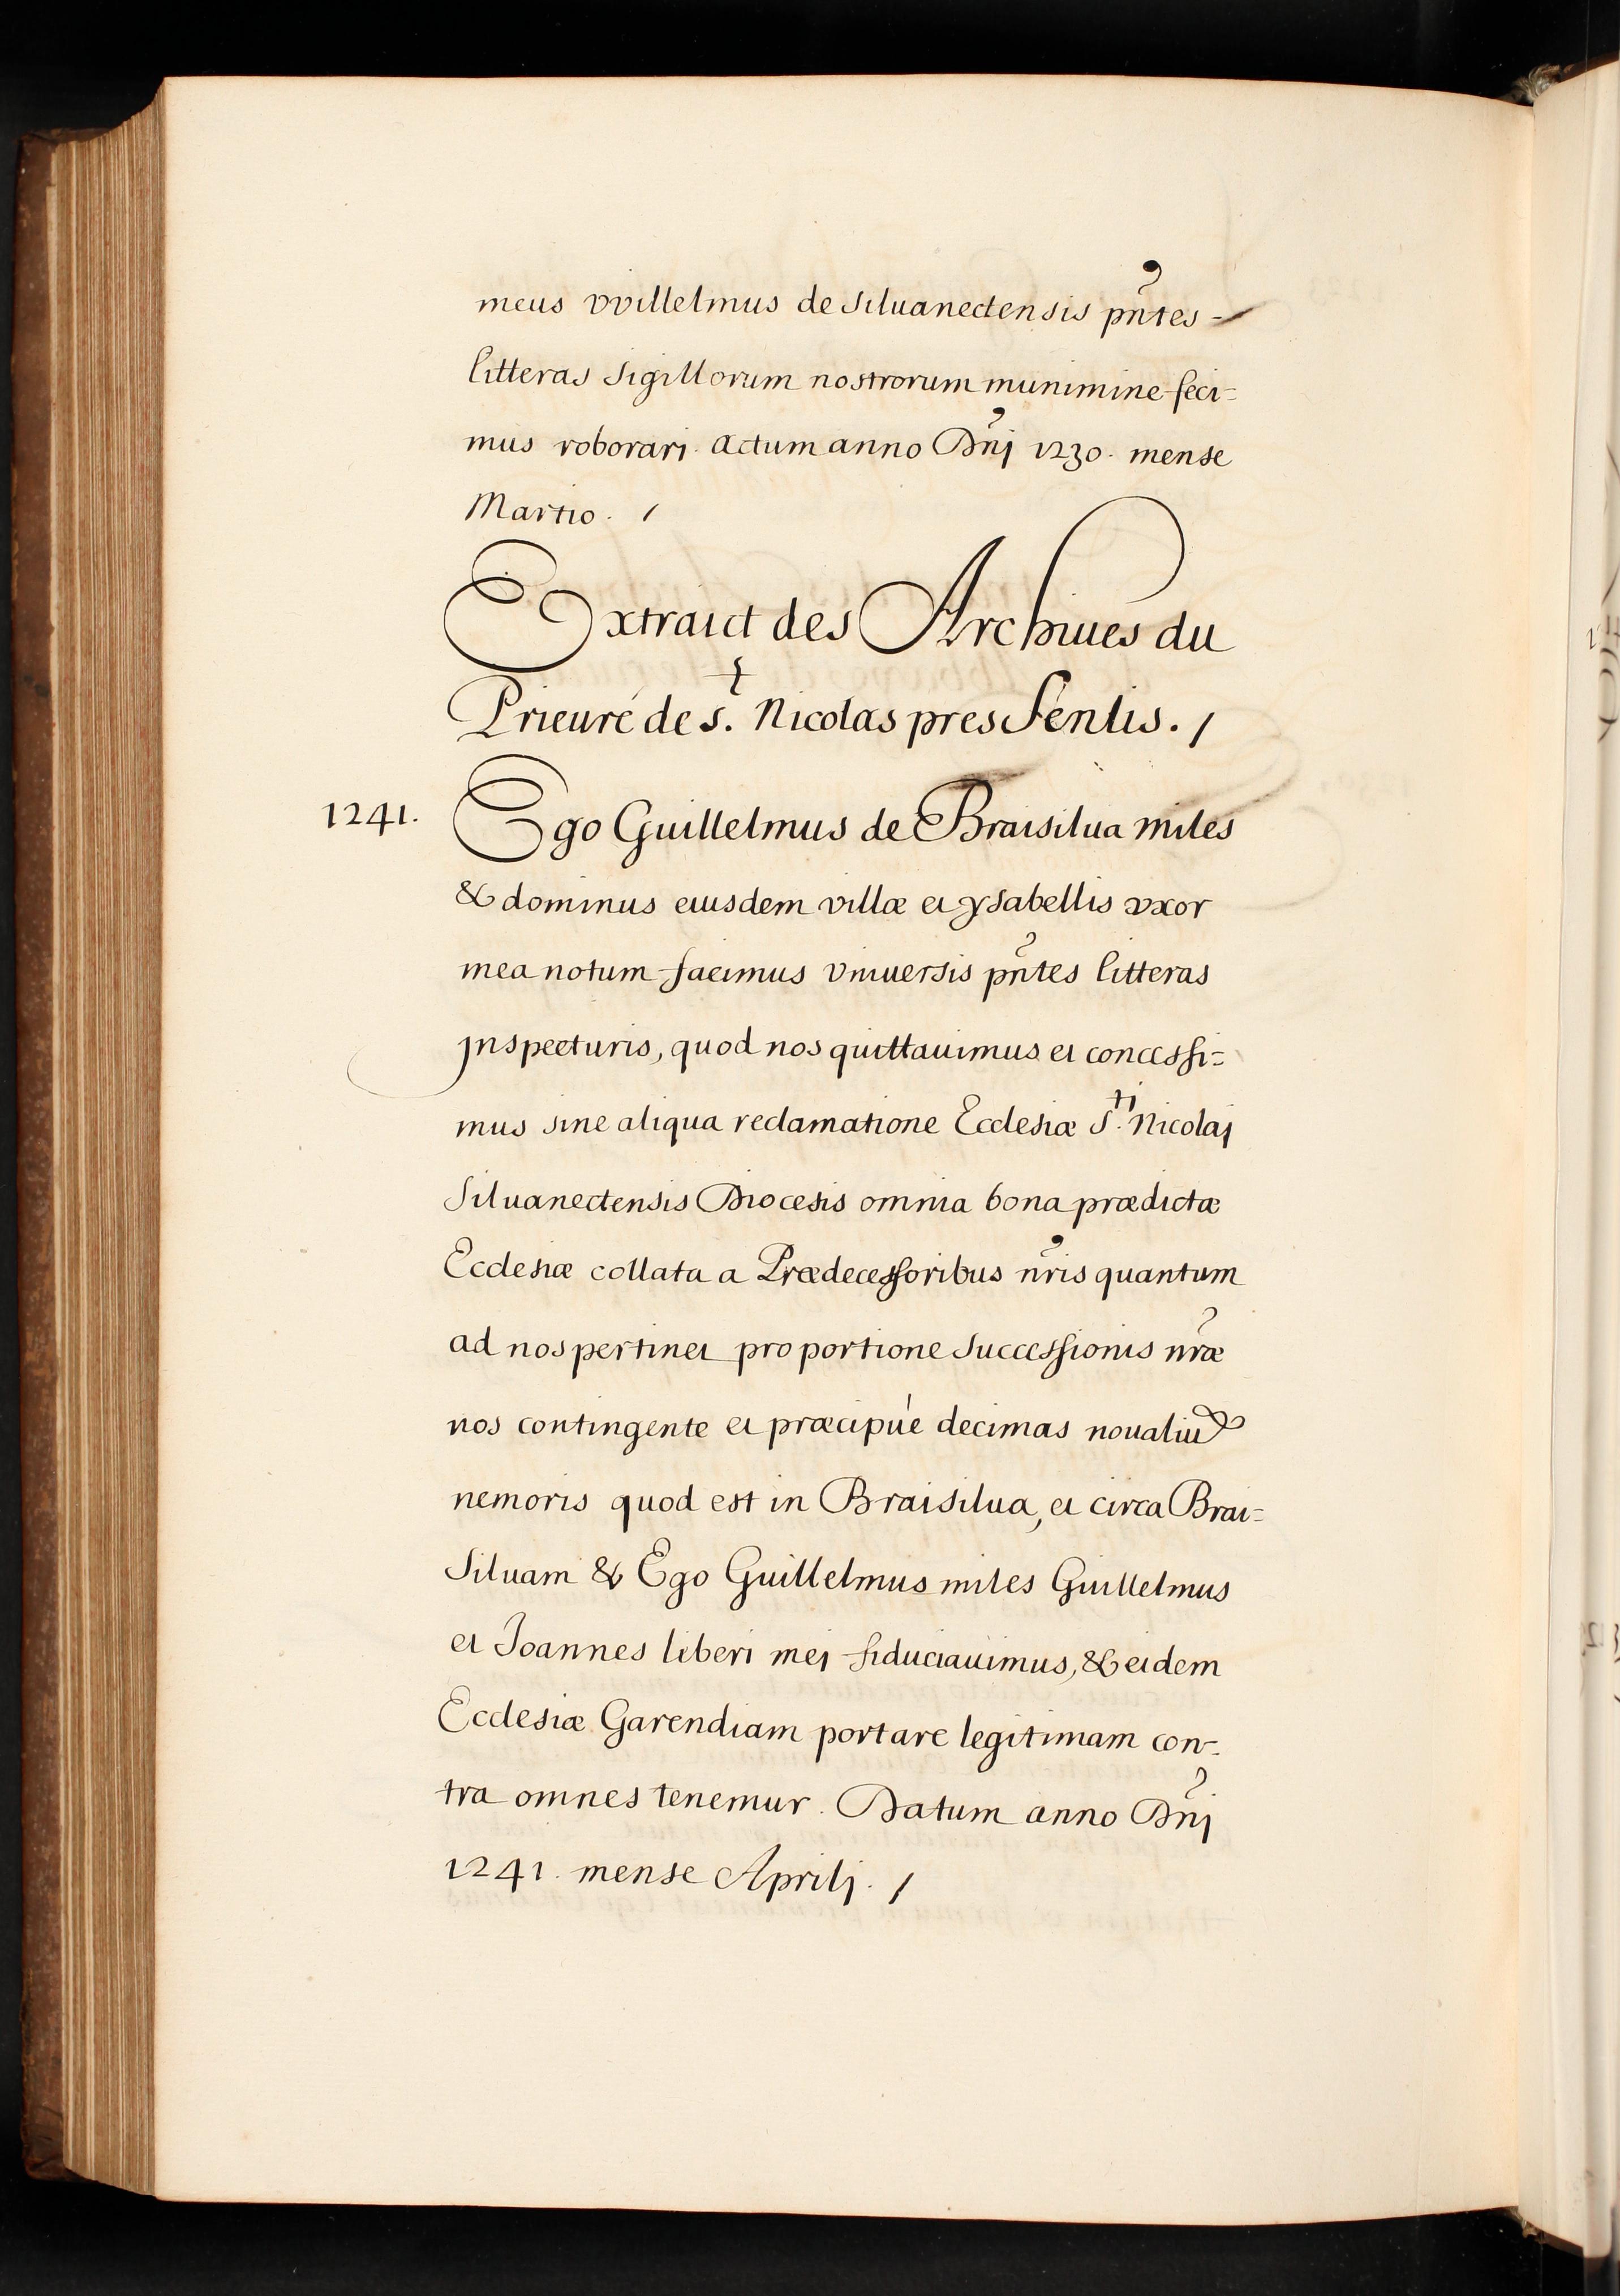 meus vvillelmus de Siluanectensis pñtes -
litteras Sigillorum nostrorum munimine feci=
mus roborari. actum anno Dñj 1230. mense
Martio. /
Extraict des Archiues du
Prieuré de S.t Nicolas pres Senlis. /
1241. Ego Guillelmus de Braisilua miles
& dominus eiusdem villæ et ysabellis vxor
mea notum facimus vniuersis pñtes litteras
jnspecturis, quod nos quittauimus et concessi=
mus sine aliqua reclamatione Ecclesiæ S.ti Nicolaj
Siluanectensis Diocesis omnia bona prædictæ
Ecclesiæ collata a Prædecessoribus ñris quantum
ad nos pertinet pro portione Successionis ñræ
nos contingente et præcipúe decimas noualiũ
nemoris quod est in Braisilua, et circa Brai=
Siluam & Ego Guillelmus miles Guillelmus
et Joannes liberi mej fiduciauimus, & eidem
Ecclesiæ Garendiam portare legitimam con=
tra omnes tenemur. Datum anno Dñj
1241. mense Aprilj. /